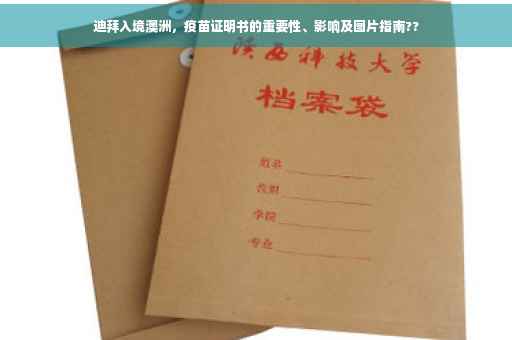 迪拜入境澳洲，疫苗证明书的重要性、影响及图片指南??
陕西科技大学
档案袋
姓名
学院
专业